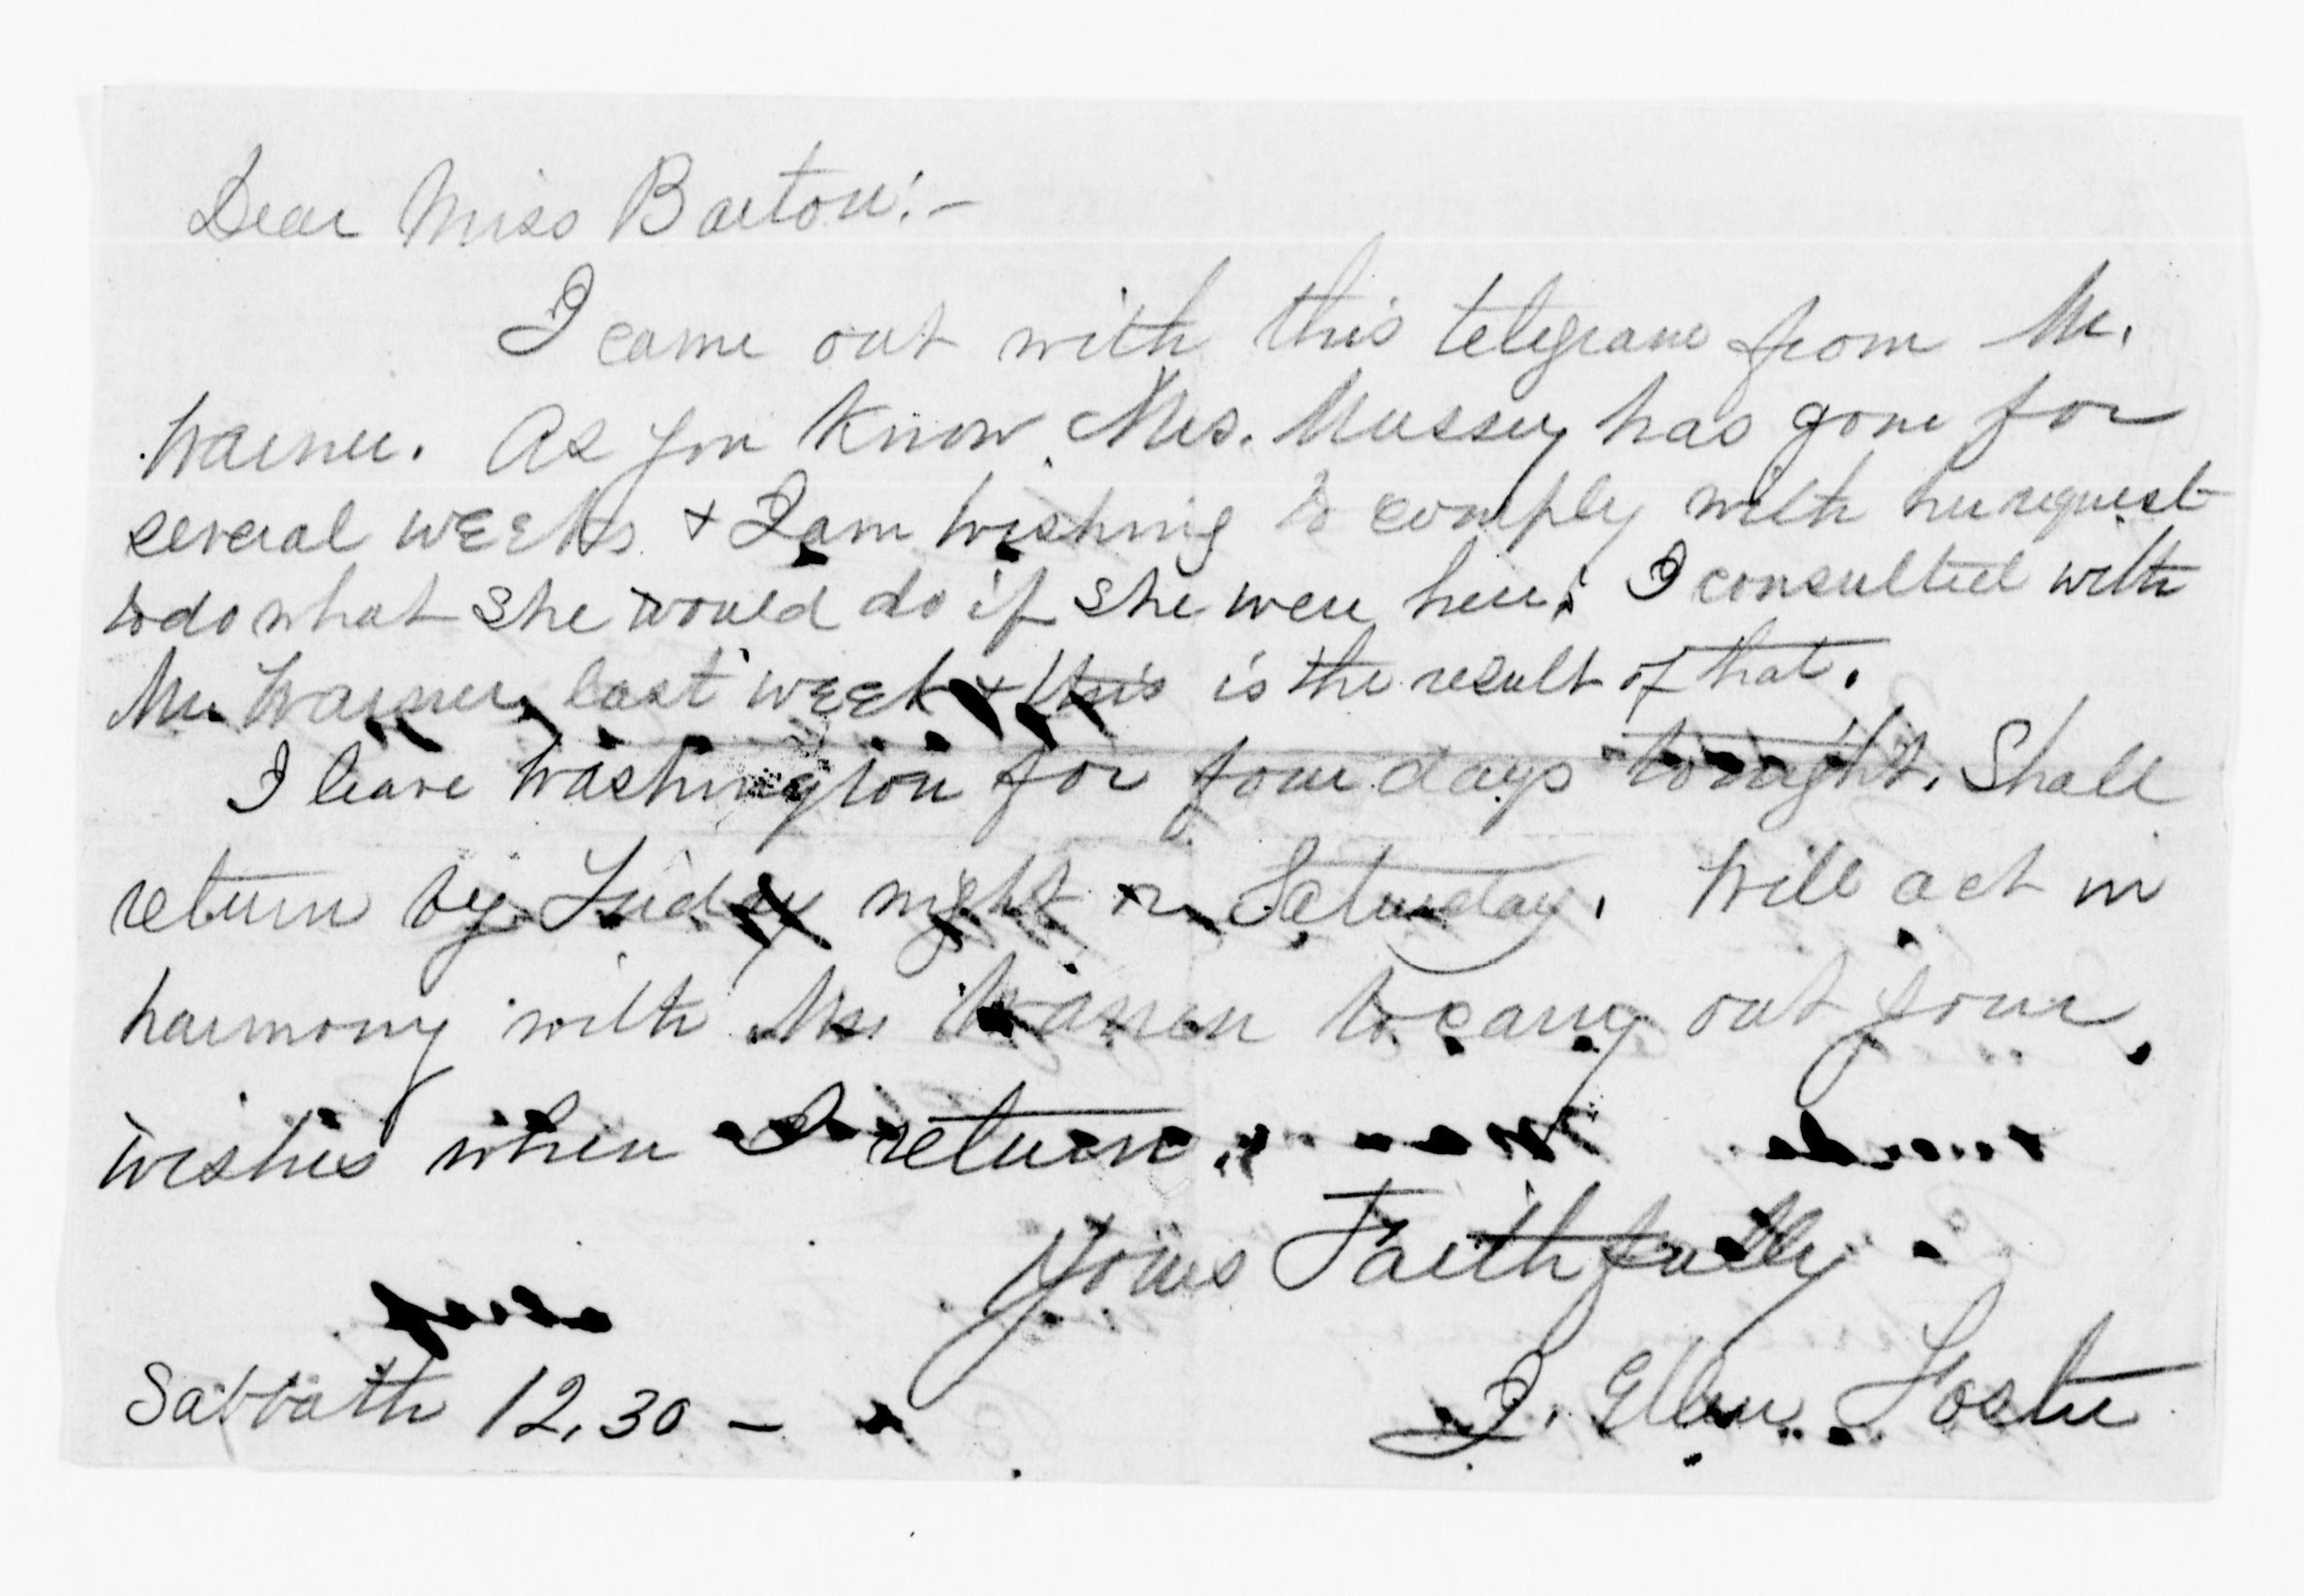 Dear Miss Barton:-
I came out with this telegram from Mr.
Warner. As you know Mrs. Mussey has gone for
several weeks & I am wishing to comply with her request
to do what she would do if she were here; I consulted with
Mr. Warner last week & this is the result of that.
I leave Washington for four days tonight. Shall
return by Friday night or Saturday. Will act in
harmony with Mr. Warner to carry out your
wishes when I return.
Yours Faithfully
J. Ellen Foster
Sabbath 12.30 -